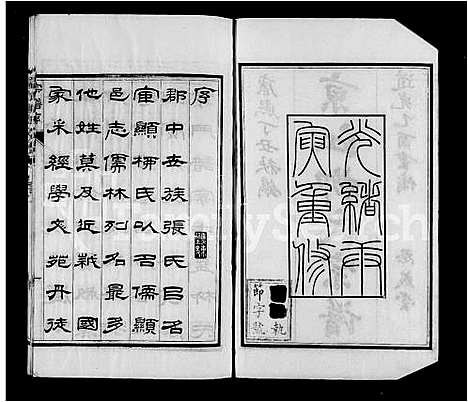 光緒庚
寅重修
執
節字號
序
郡中世族張氏㠯名
宦顯柳氏以名儒顯
邑志儒林列名最多
他姓莫及近國
家采經學文苑丹徒
FamilySearch